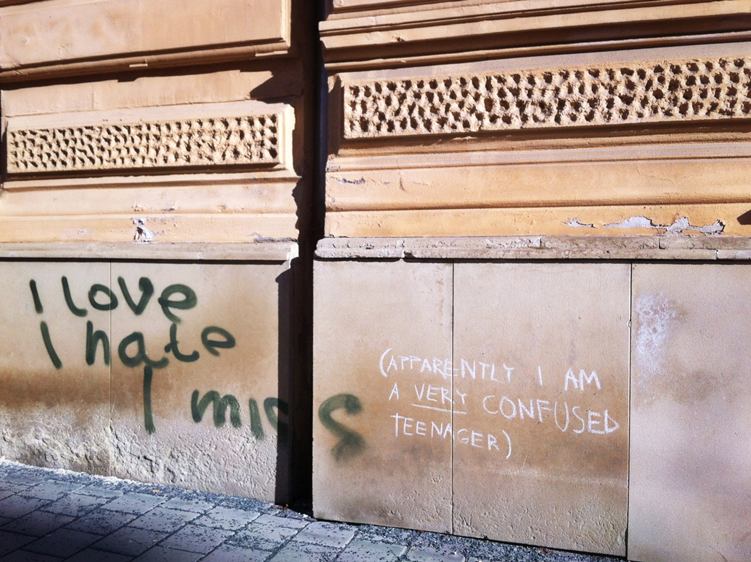 I love
I hate
I miss
(APPARENTLY I AM
A VERY CONFUSED
TEENAGER)